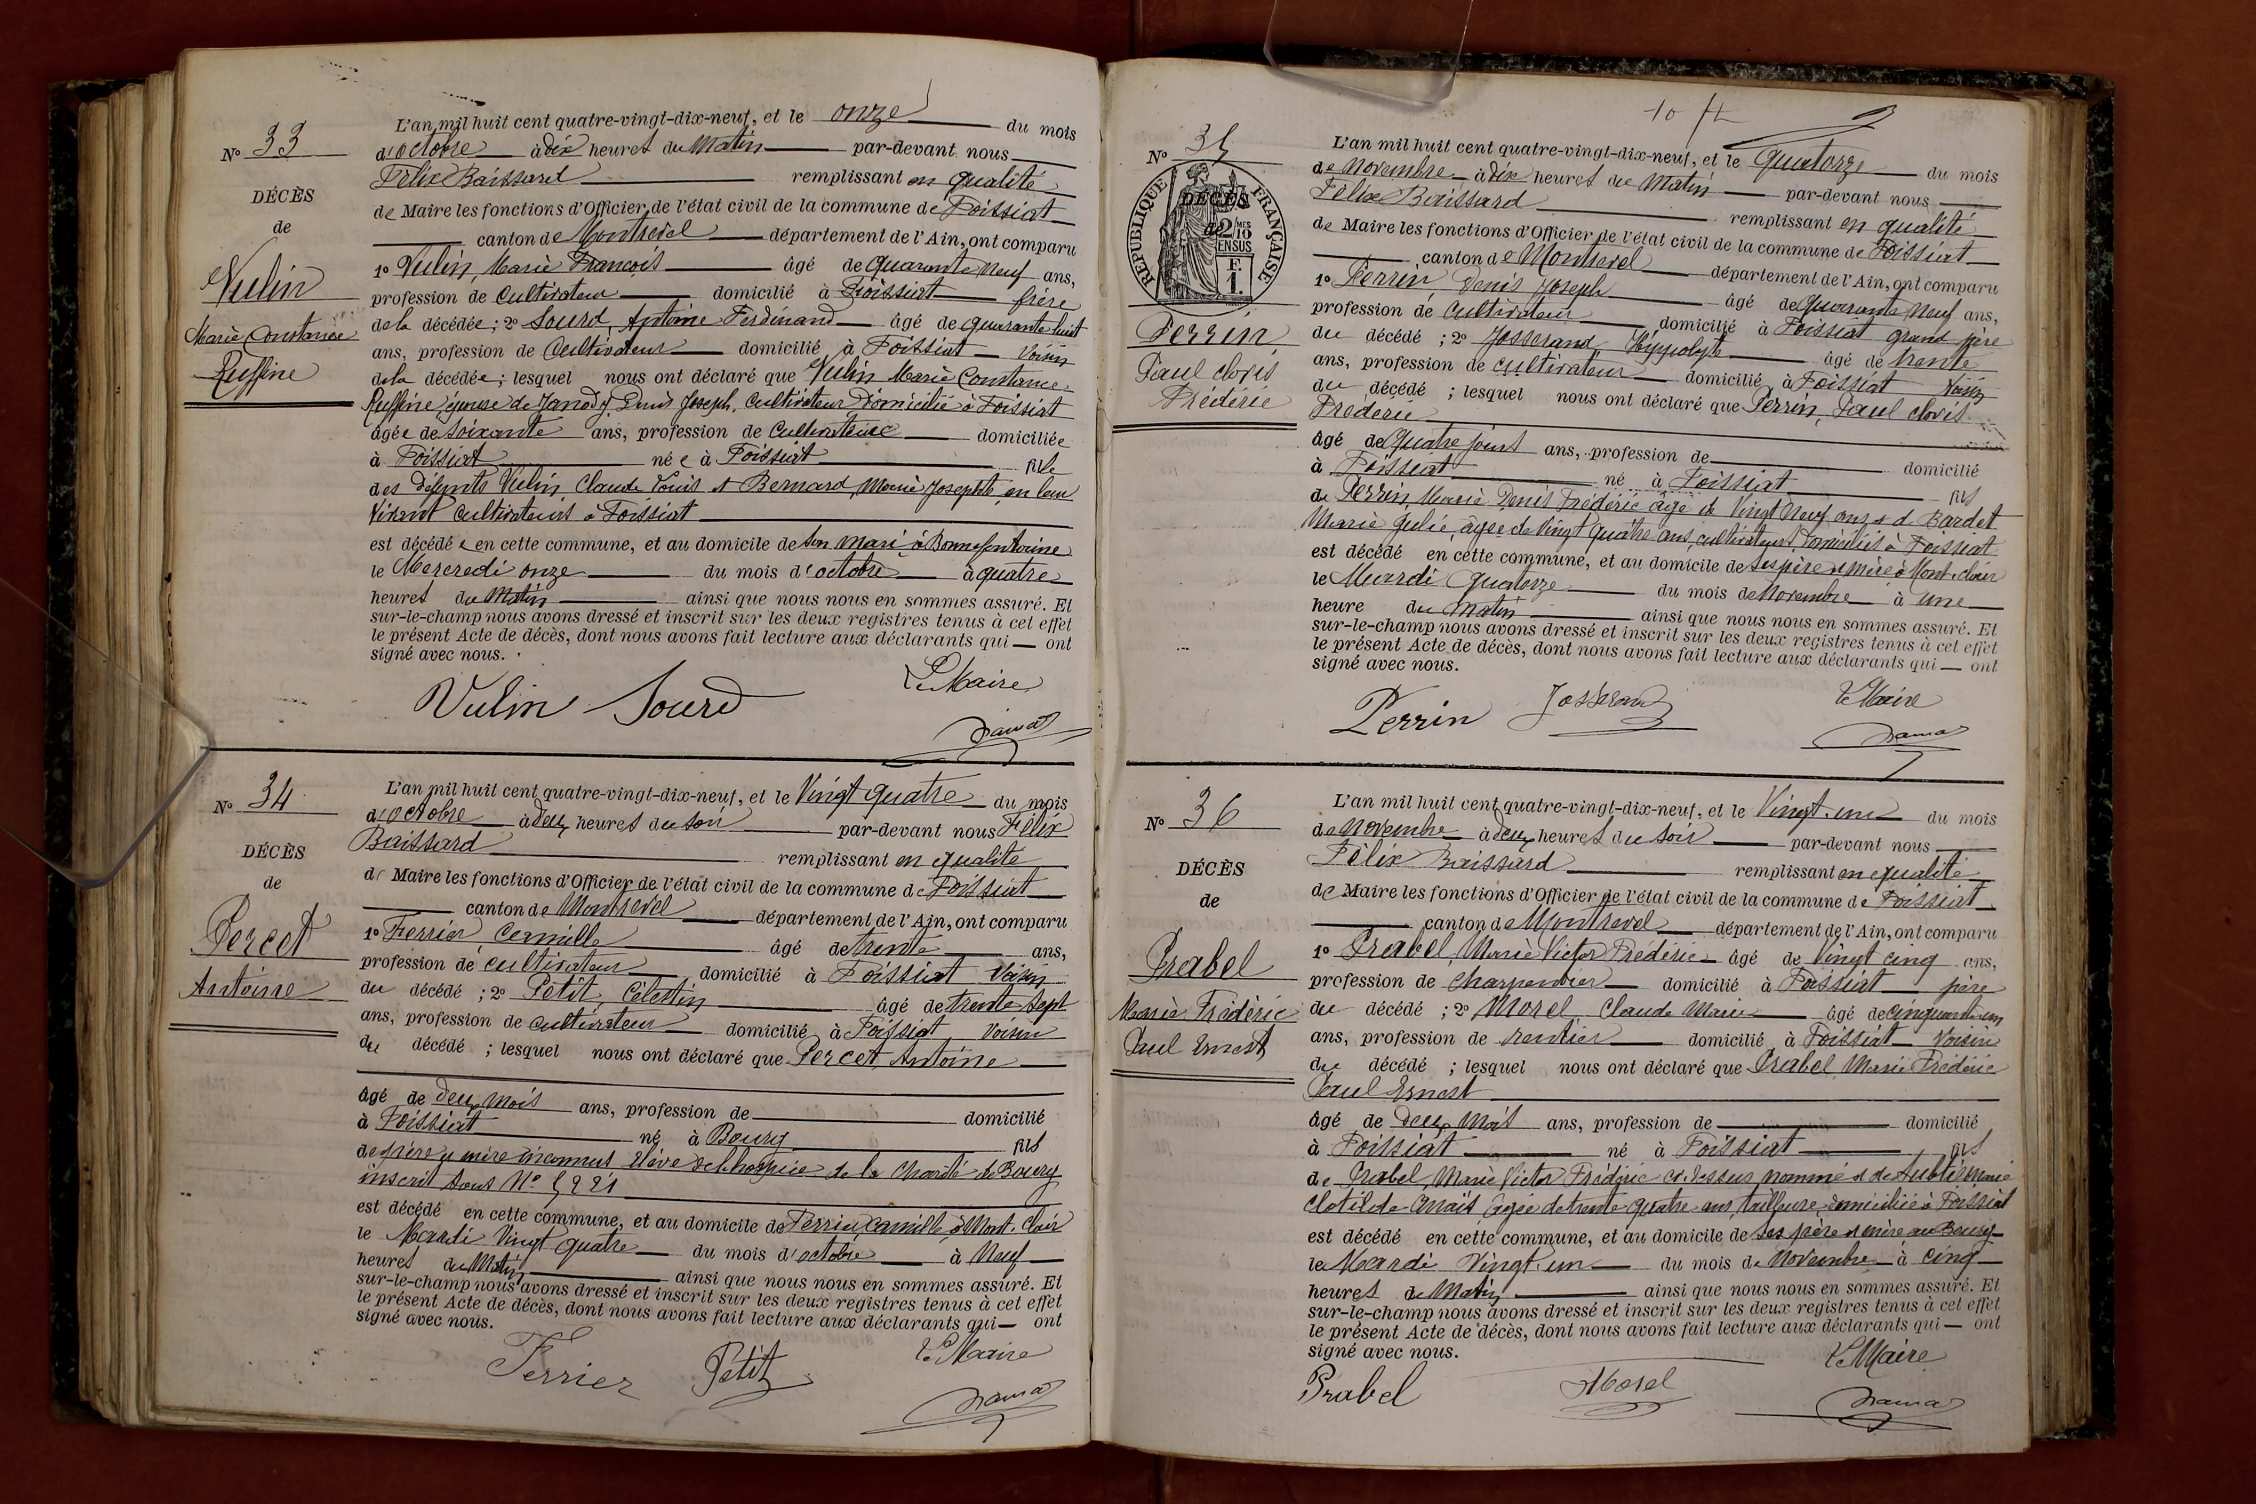 N° 33
DÉCÈS
de
Vulin
Marie Constance
Ruffine
L'an mil huit cent quatre-vingt-dix-neuf, et le onze du mois
d'octobre à dix heures du Matin par-devant nous
Félix Baissard remplissant en qualité
de Maire les fonctions d'Officier de l'état civil de la commune de Foissiat
canton de Montrevel département de l'Ain, ont comparu
1° Vulin, Marie François âgé de quarante neuf ans,
profession de Cultivateur domicilié à Foissiat frère
de la décédée; 2° Sourd, Antoine Ferdinand âgé de quarante huit
ans, profession de Cultivateur domicilié à Foissiat Voisin
de la décédée; lesquel nous ont déclaré que Vulin Marie Constance
Ruffine épouse de Janody, Denis Joseph, Cultivateur domicilié à Foissiat
âgée de soixante ans, profession de Cultivateuse domiciliée
à Foissiat née à Foissiat fille
des défunts Vulin Claude Louis et Bernard, Marie Josephte, en leur
Vivant Cultivateurs à Foissiat
est décédée en cette commune, et au domicile de son mari, à Bonnefontaine
le Mercredi onze du mois d'octobre à quatre
heures du Matin ainsi que nous nous en sommes assuré. Et
sur-le-champ nous avons dressé et inscrit sur les deux registres tenus à cet effet
le présent Acte de décès, dont nous avons fait lecture aux déclarants qui ont
signé avec nous.
Vulin Sourd Le Maire
N° 34
DÉCÈS
de
Percet
Antoine
L'an mil huit cent quatre-vingt-dix-neuf, et le Vingt quatre du mois
d'octobre à deux heures du soir par-devant nous Félix
Baissard remplissant en qualité
de Maire les fonctions d'Officier de l'état civil de la commune de Foissiat
canton de Montrevel département de l'Ain, ont comparu
1° Ferrier, Camille âgé de trente ans,
profession de cultivateur domicilié à Foissiat Voisin
du décédé; 2° Petit, Celestin âgé de trente sept
ans, profession de cultivateur domicilié à Foissiat Voisin
du décédé; lesquel nous ont déclaré que Percet, Antoine
âgé de deux mois ans, profession de domicilié
à Foissiat né à Bourg fils
de père et mère inconnus Elève de l'hospice de la Charité de Bourg
inscrit sous N°
est décédé en cette commune, et au domicile de Ferrier, Camille, à Mont-Clair
le Mardi Vingt quatre du mois d'octobre à Neuf
heures du Matin ainsi que nous nous en sommes assuré. Et
sur-le-champ nous avons dressé et inscrit sur les deux registres tenus à cet effet
le présent Acte de décès, dont nous avons fait lecture aux déclarants qui ont
signé avec nous.
Ferrier Petit Le Maire
N° 35
RÉPUBLIQUE FRANÇAISE
DÉCÈS
de
2/10 EN SUS
F. 1.
Perrin
Paul Clovis
Fréderic
L'an mil huit cent quatre-vingt-dix-neuf, et le Quatorze du mois
de Novembre à dix heures du Matin par-devant nous
Félix Baissard remplissant en qualité
de Maire les fonctions d'Officier de l'état civil de la commune de Foissiat
canton de Montrevel département de l'Ain, ont comparu
1° Perrin Denis Joseph âgé de quarante neuf ans,
profession de Cultivateur domicilié à Foissiat grand père
du décédé; 2° Josserand Hyppolyte âgé de trente
ans, profession de cultivateur domicilié à Foissiat Voisin
du décédé; lesquel nous ont déclaré que Perrin, Paul Clovis
Fréderic
âgé de quatre jours ans, profession de domicilié
à Foissiat né à Foissiat fils
de Perrin Marie Denis Fréderic âgé de Vingt neuf ans et d. Bardet
Marie Julie, âgée de Vingt quatre ans, cultivateurs, domiciliés à Foissiat
est décédé en cette commune, et au domicile de ses père et mère à Mont-Clair
le Mardi Quatorze du mois de Novembre à une
heure du matin ainsi que nous nous en sommes assuré. Et
sur-le-champ nous avons dressé et inscrit sur les deux registres tenus à cet effet
le présent Acte de décès, dont nous avons fait lecture aux déclarants qui ont
signé avec nous.
Perrin Josserand Le Maire
N° 36
DÉCÈS
de
Prabel
Marie Fréderic
Paul Ernest
L'an mil huit cent quatre-vingt-dix-neuf, et le Vingt-un du mois
de Novembre à deux heures du soir par-devant nous
Félix Baissard remplissant en qualité
de Maire les fonctions d'Officier de l'état civil de la commune de Foissiat
canton de Montrevel département de l'Ain, ont comparu
1° Prabel, Marie Victor Fréderic âgé de Vingt cinq ans,
profession de Charpentier domicilié à Foissiat père
du décédé; 2° Morel Claude Marie âgé de cinquante un
ans, profession de rentier domicilié à Foissiat Voisin
du décédé; lesquel nous ont déclaré que Prabel Marie Fréderic
Paul Ernest
âgé de Deux Mois ans, profession de domicilié
à Foissiat né à Foissiat fils
de Prabel, Marie Victor Fréderic ci-dessus nommé et de Marie
Clotilde Anaïs âgée de trente quatre ans, tailleuse, domiciliée à Foissiat
est décédé en cette commune, et au domicile de ses père et mère au Bourg
le Mardi Vingt-un du mois de Novembre à cinq
heures du Matin ainsi que nous nous en sommes assuré. Et
sur-le-champ nous avons dressé et inscrit sur les deux registres tenus à cet effet
le présent Acte de décès, dont nous avons fait lecture aux déclarants qui ont
signé avec nous.
Prabel Morel Le Maire